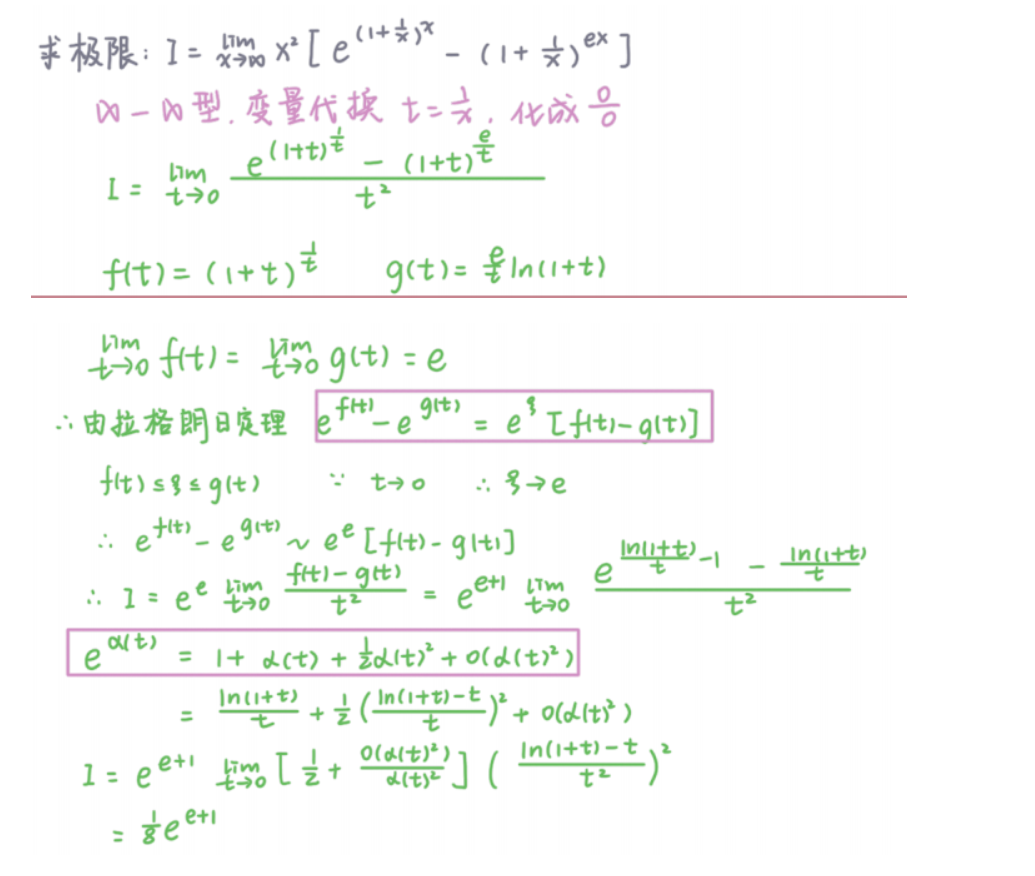 求极限: I = lim x→∞ x² [ e^{(1+1/x)^x} - (1+1/x)^{ex} ]
∞-∞型. 变量代换 t=1/x, 化成 0/0
I = lim t→0 (e^{(1+t)^{1/t}} - (1+t)^{e/t}) / t²
f(t) = (1+t)^{1/t}  g(t) = e/t ln(1+t)
lim t→0 f(t) = lim t→0 g(t) = e
∴ 由拉格朗日定理 e^{f(t)} - e^{g(t)} = e^ξ [f(t)-g(t)]
f(t) ≤ ξ ≤ g(t)  ∵ t→0  ∴ ξ→e
∴ e^{f(t)} - e^{g(t)} ~ e^e [f(t)-g(t)]
∴ I = e^e lim t→0 (f(t)-g(t))/t² = e^{e+1} lim t→0 (e^{ln(1+t)/t -1} - ln(1+t)/t) / t²
e^{α(t)} = 1+ α(t) + 1/2 α(t)² + o(α(t)²)
= ln(1+t)/t + 1/2 ((ln(1+t)-t)/t)² + o(α(t)²)
I = e^{e+1} lim t→0 [ 1/2 + o(α(t)²)/α(t)² ] ((ln(1+t)-t)/t²)²
= 1/8 e^{e+1}